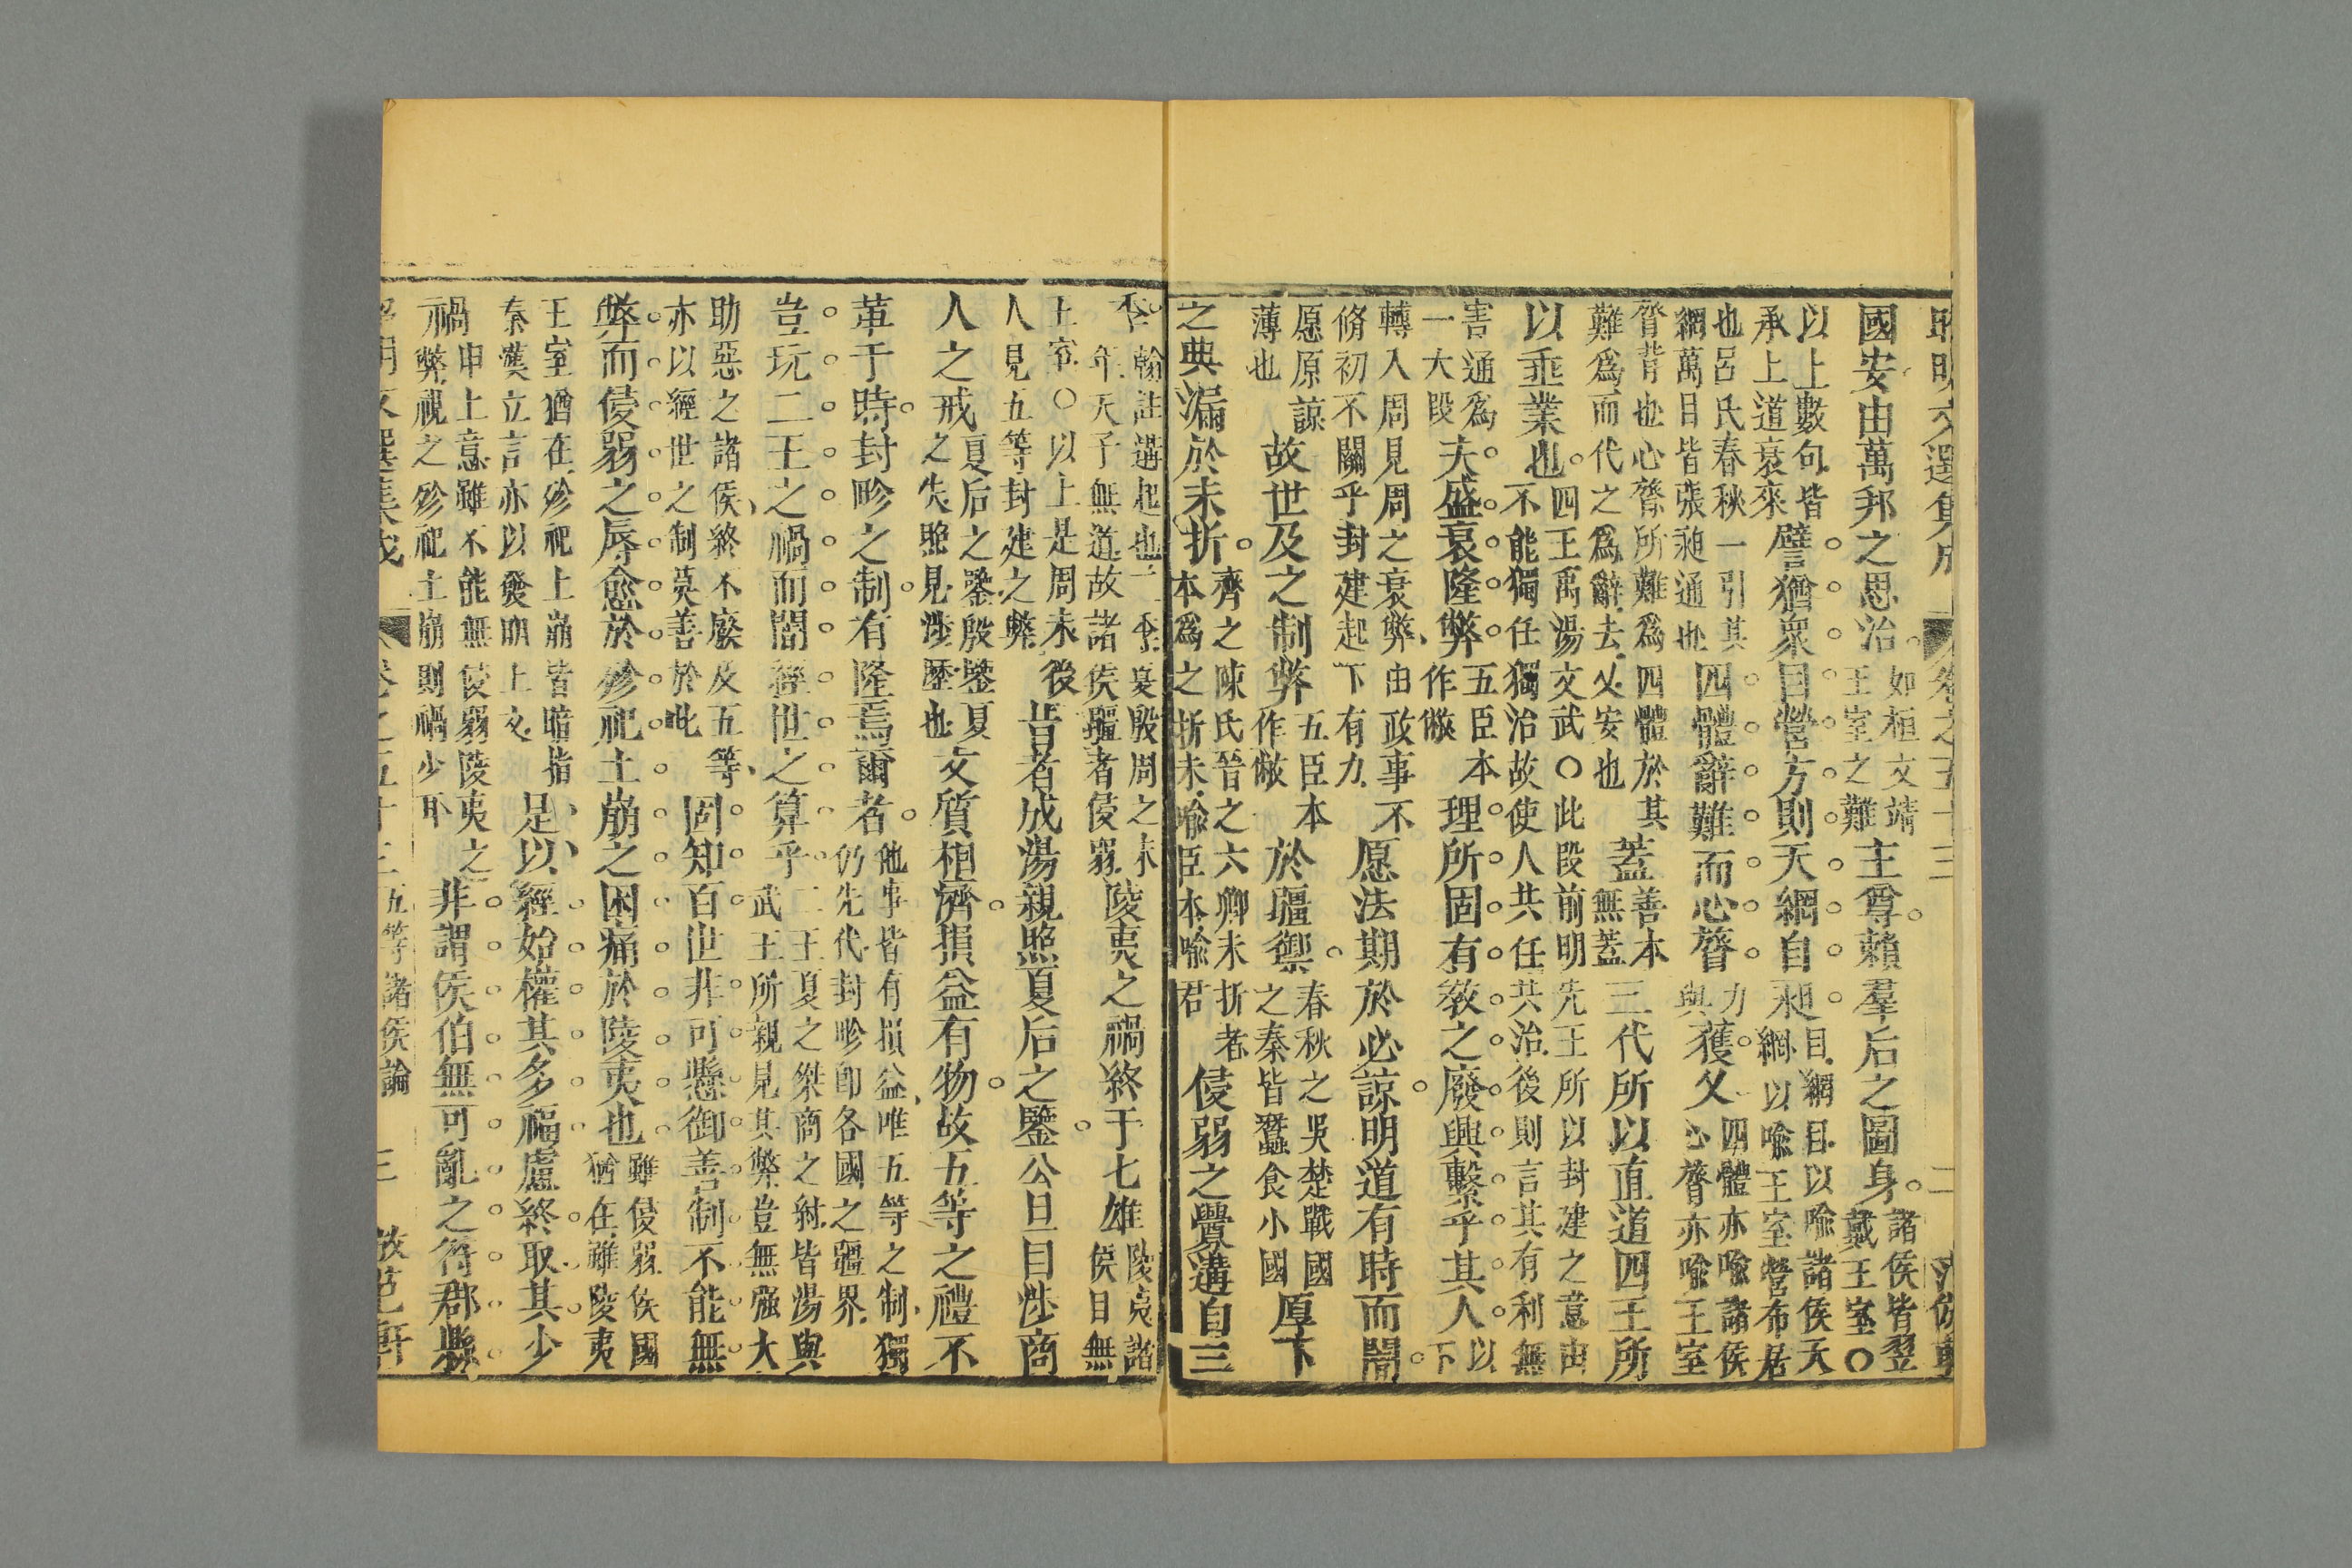 昭明文選集成 卷之五十三 二
國安由萬邦之思治如桓文靖王室之難主尊賴羣后之圖身諸侯皆翌戴王室〇
以上數句皆承上道衰來譬猶衆目營方則天網自昶目網目以喻諸侯天網以喻王室營布居
也呂氏春秋一引其網萬目皆張昶通也四體辭難而心膂力與獲乂四體亦喻諸侯心膂亦喻王室
膂背也心膂所難爲四體於其難爲而代之爲辭去乂安也蓋善本無蓋三代所以直道四王所
以垂業也四王禹湯文武〇此段前明先王所以封建之意由不能獨任獨治故使人共任共治後則言其有利無
害通爲一大段夫盛衰隆弊五臣本作敝理所固有教之廢興繫乎其人以下
轉入周見周之衰弊由政事不脩初不關乎封建起下有力愿法期於必諒明道有時而闇
愿原諒薄也故世及之制弊五臣本作敝於彊禦春秋之吳楚戰國之秦皆蠶食小國厚下
之典漏於末折齊之陳氏晉之六卿末折者本爲之折末喻臣本喻君侵弱之釁遘自三
季翰註遘起也二季夏殷周之末年天子無道故諸侯彊者侵弱陵夷之禍終于七雄陵夷諸侯目無
上室〇以上是周末後人見五等封建之弊昔者成湯親照夏后之鑒公旦目涉商
人之戒夏后之鑒殷鑒夏之失照見涉歷也文質相濟損益有物故五等之禮不
革于時封畛之制有隆焉爾者他事皆有損益唯五等之制獨仍先代封畛卽各國之疆界
豈玩二王之禍而闇經世之算乎二王夏之桀商之紂皆湯與武王所親見其弊豈無强大
助惡之諸侯終不廢及五等亦以經世之制莫善於此固知百世非可懸御善制不能無
弊而侵弱之辱愈於殄祀土崩之困痛於陵夷也雖侵弱侯國猶在雖陵夷
王室猶在殄祀土崩皆暗指秦漢立言亦以發明上文足以經始權其多福慮終取其少
禍申上意雖不能無侵弱陵夷之禍弊視之殄祀土崩則禍少耳非謂侯伯無可亂之符郡縣
昭明文選集成 卷之五十三 五等諸侯論 三 倣范軒